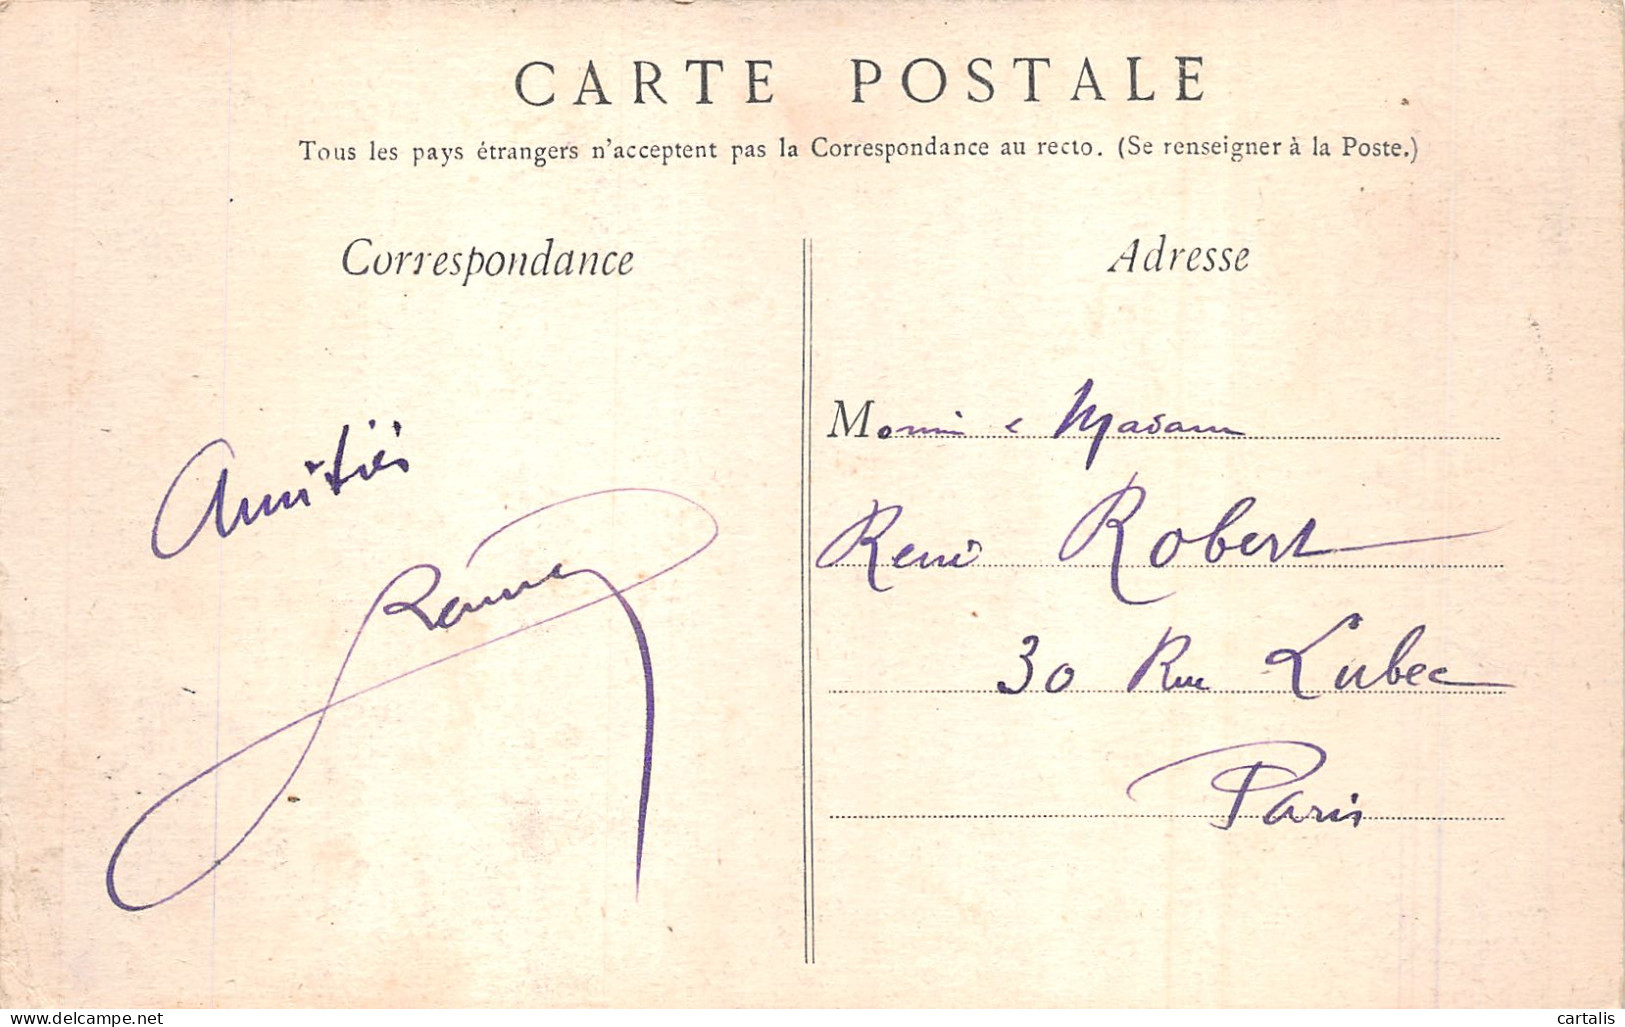 CARTE POSTALE
Tous les pays étrangers n'acceptent pas la Correspondance au recto. (Se renseigner à la Poste.)
Correspondance
Adresse
Amitiés
M
Madam
René Robert
30 Rue Lubec
Paris
www.delcampe.net
cartalis